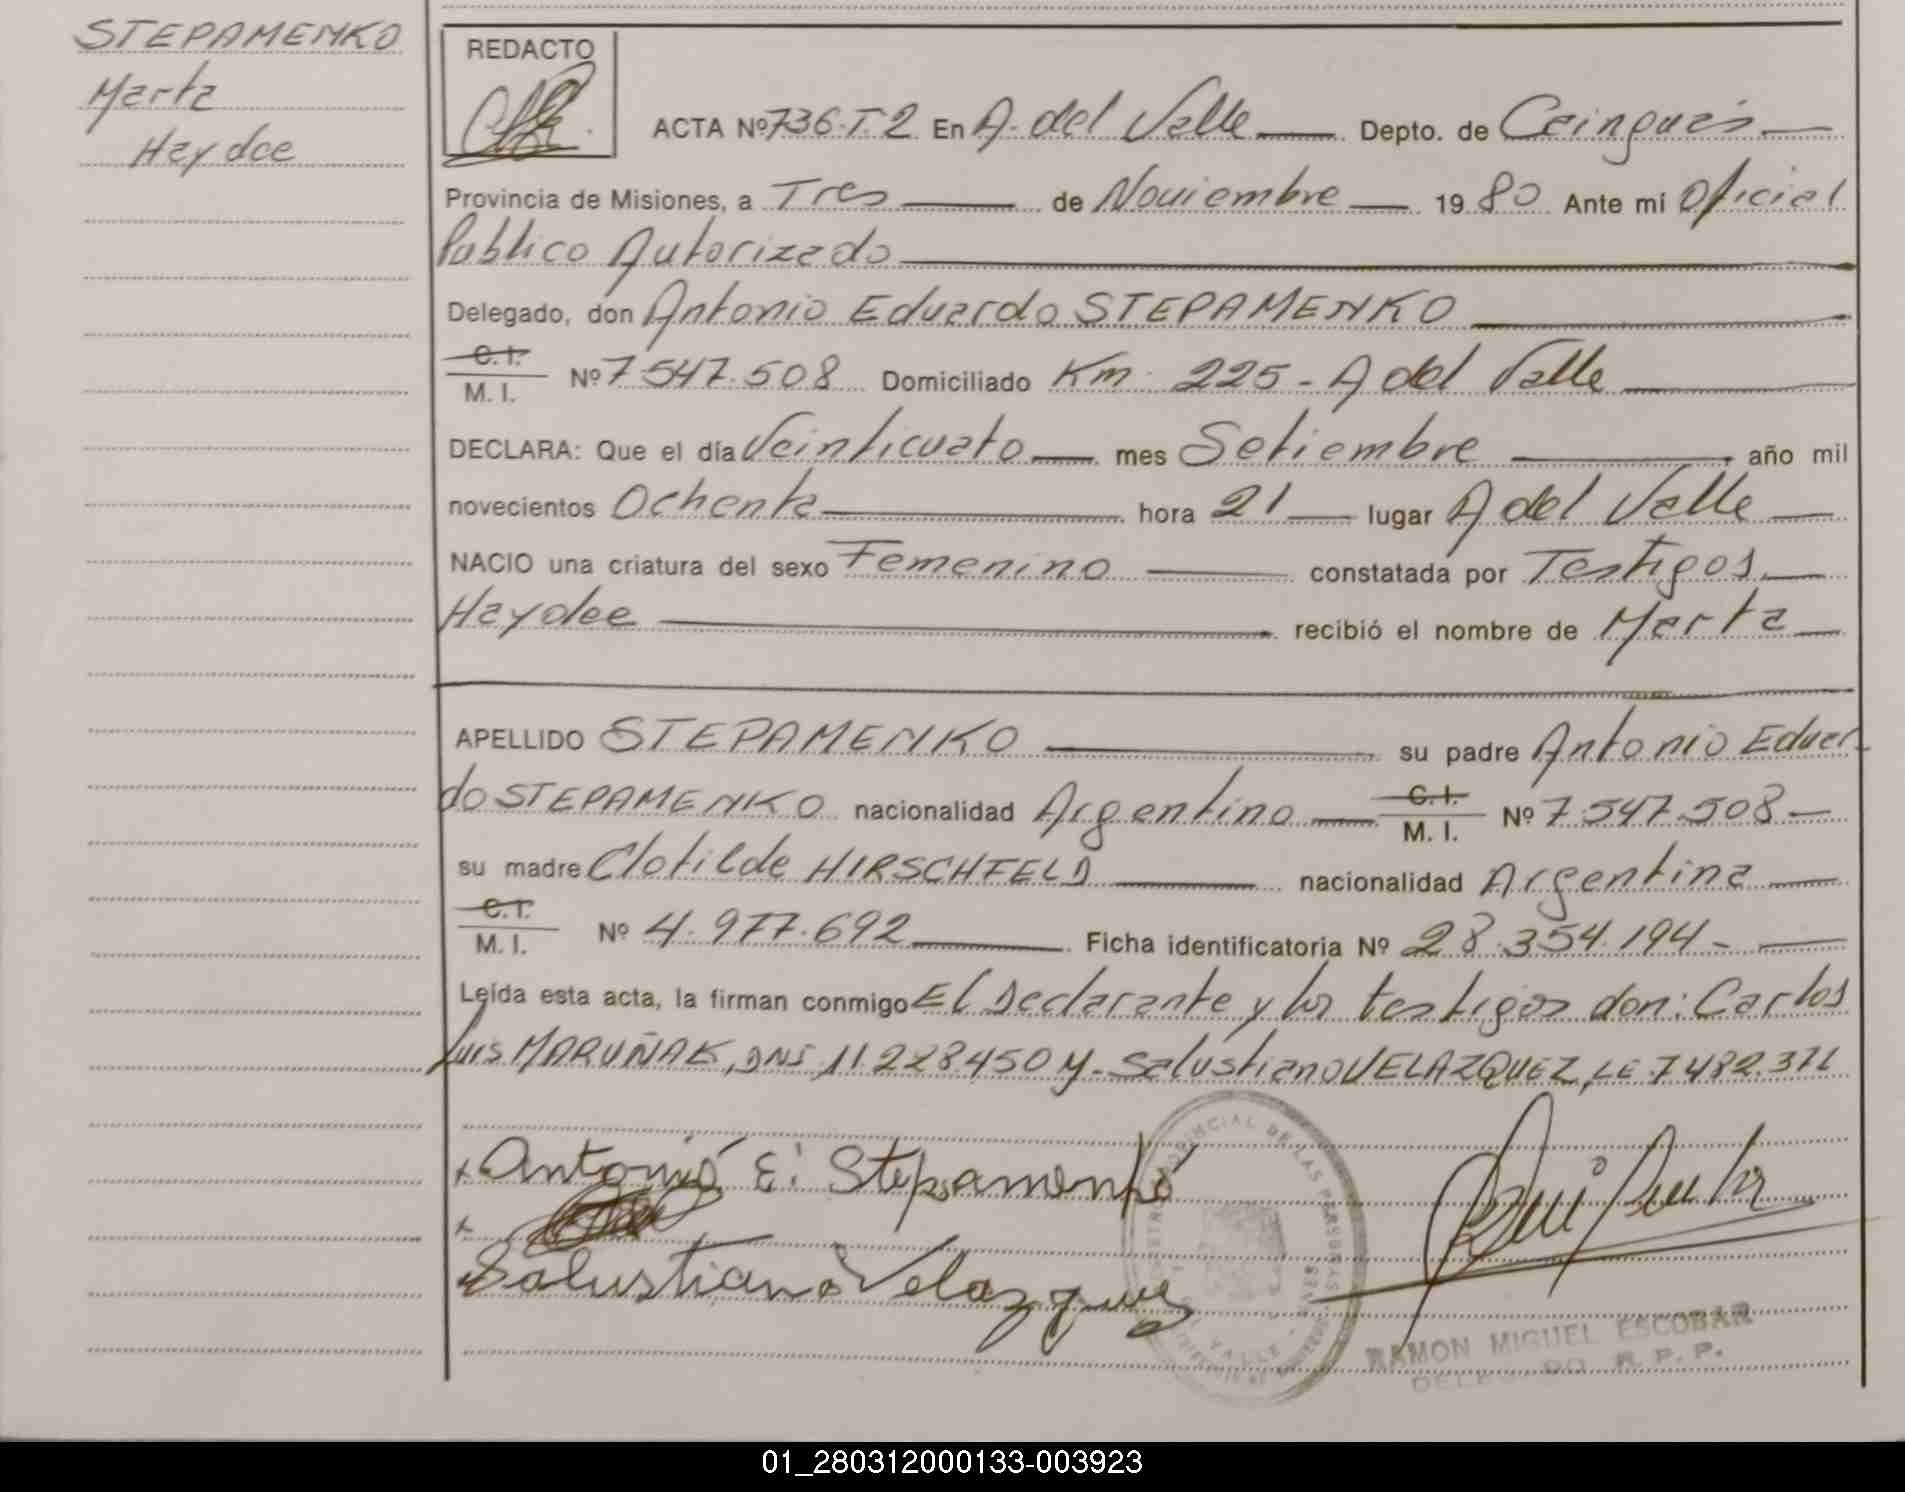 STEPAMENKO
Marta
Haydee
REDACTO
ACTA Nº 736-T.2 En A. del Valle Depto. de Caingués
Provincia de Misiones, a Tres de Noviembre 1980 Ante mi Oficial
Publico Autorizado
Delegado, don Antonio Eduardo STEPAMENKO
C. I.
M. I. Nº 7.547.508 Domiciliado Km. 225 - A del Valle
DECLARA: Que el día Veinticuato mes Setiembre año mil
novecientos Ochenta hora 21 lugar A del Valle
NACIO una criatura del sexo Femenino constatada por Testigos
Haydee recibió el nombre de Marta
APELLIDO STEPAMENKO su padre Antonio Eduar-
do STEPAMENKO nacionalidad Argentino C. I. M. I. Nº 7.547.508-
su madre Clotilde HIRSCHFELD nacionalidad Argentina
C. I.
M. I. Nº 4.977.692 Ficha identificatoria Nº 28.354.194-
Leída esta acta, la firman conmigo El Declarante y los testigos don: Carlos
Luis MARUÑAK, DNI 11.228.450 y Salustiano VELAZQUEZ, LE 7.482.371
Antonio E. Stepamenko
Salustiano Velazquez
PROVINCIAL DE LAS PERSONAS
VALLE
RAMON MIGUEL ESCOBAR
DELEGADO R. P. P.
01_280312000133-003923